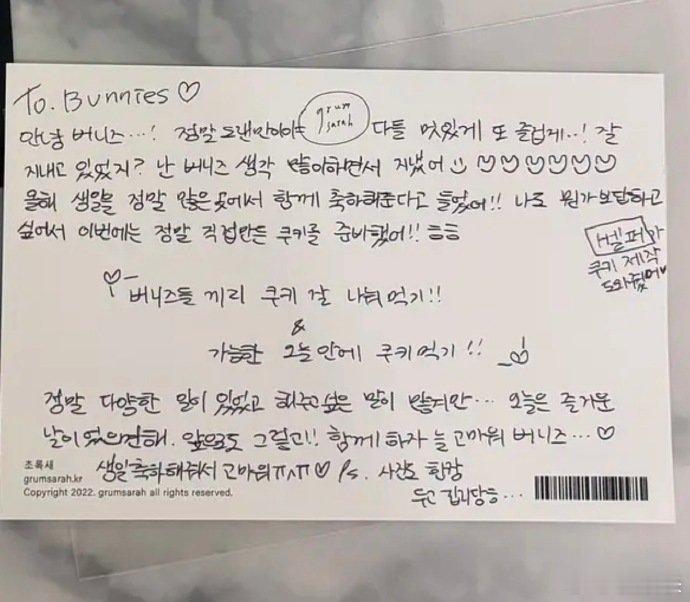 To. Bunnies ♡
안녕 버니즈...! 정말 오랜만이야 다들 맛있게 또 즐겁게..! 잘
grum sarah
지내고 있었지? 난 버니즈 생각 많이하면서 지냈어 ☺ ♡♡♡♡♡♡
올해 생일을 정말 많은 곳에서 함께 축하해준다고 들었어!! 나도 뭔가 보답하고
싶어서 이번에는 정말 직접만든 쿠키를 준비했어!! ㅎㅎ
헬퍼가
쿠키 제작
도와줬어♥
버니즈들 끼리 쿠키 잘 나눠 먹기!!
&
가능한 오늘안에 쿠키먹기!!
정말 다양한 일이 있었고 해주고싶은 말이 많지만... 오늘은 즐거운
날이었으면해. 앞으로도 그렇고!! 함께하자 늘 고마워 버니즈... ♡
생일축하해줘서 고마워ㅠㅅㅠ ♡ Ps. 사진도 한장
두고 갑니당...
초록새
grumsarah.kr
Copyright 2022. grumsarah all rights reserved.